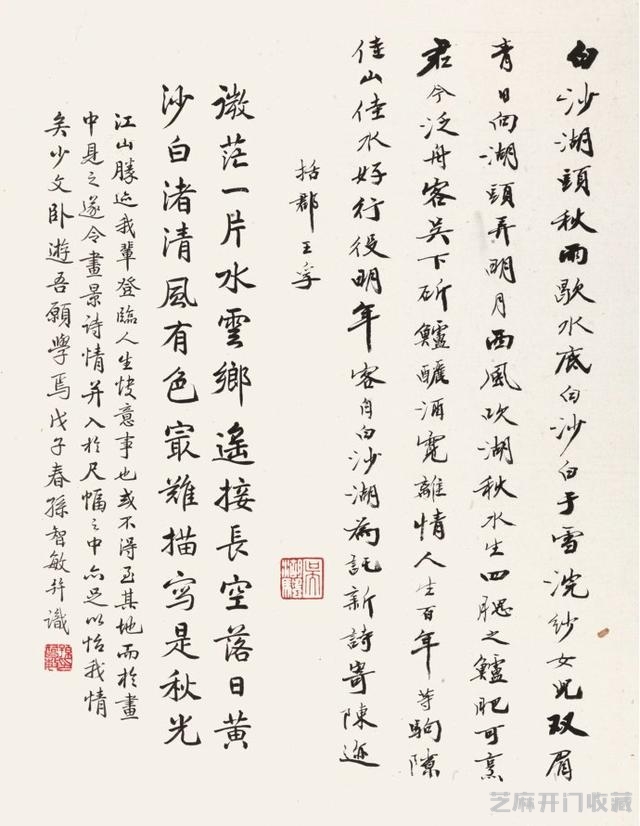 白沙湖頭秋雨歇水底白沙白于雪浣紗女兒双眉
青日向湖頭弄明月西風吹湖秋水生四腮之鱸肥可烹
君今泛舟客吳下斫鱸釃酒寬離情人生百年等駒隙
佳山佳水好行役明年客自白沙湖為託新詩寄陳迹
括郡王孚
微茫一片水雲鄉遙接長空落日黃
沙白渚清風有色寂難描寫是秋光
江山勝迹我輩登臨人生快意事也或不得至其地而於畫
中見之遂令畫景詩情并入於尺幅之中亦足以怡我情
矣少文卧遊吾願學焉戊子春孫智敏并識
芝麻开门收藏